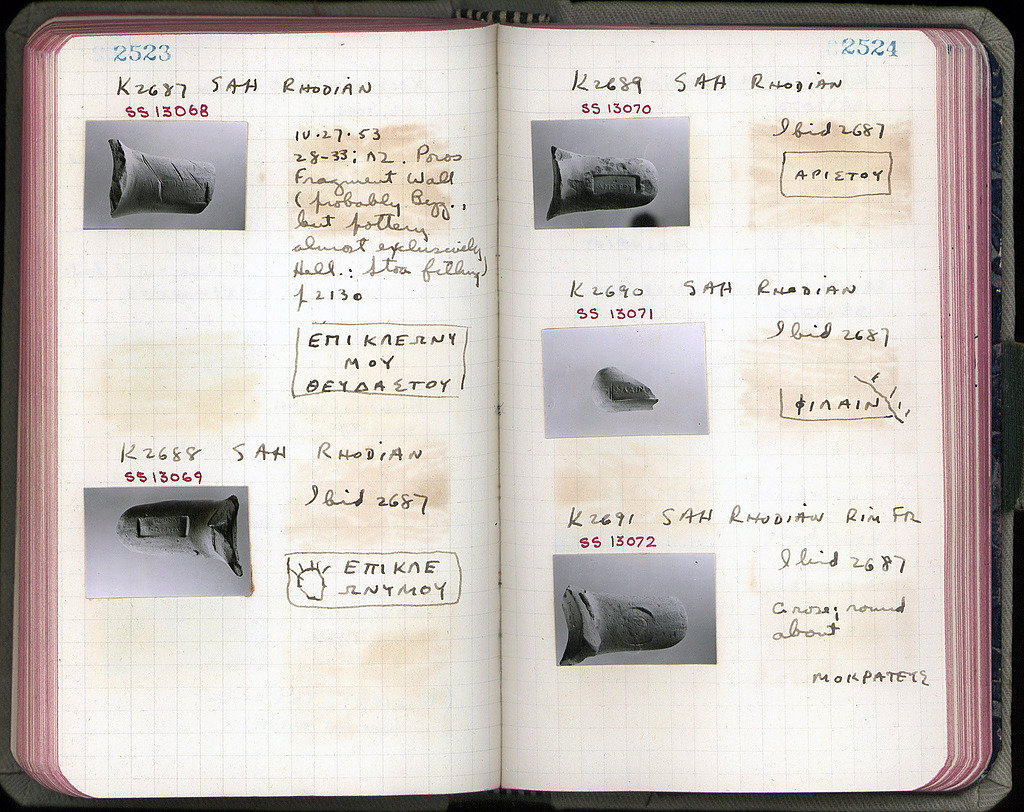 2523
K2687 SAH RHODIAN
SS 13068
IV·27·53
28-33; ΛZ. Poros
Fragment Wall
(probably Byz.,
but pottery
almost exclusively
Hell.: Stoa filling)
p 2130
ΕΠΙ ΚΛΕΩΝΥ
ΜΟΥ
ΘΕΥΔΑΙΣΤΟΥ
K2688 SAH RHODIAN
SS 13069
Ibid 2687
ΕΠΙΚΛΕ
ΩΝΥΜΟΥ
2524
K2689 SAH RHODIAN
SS 13070
Ibid 2687
ΑΡΙΣΤΟΥ
K2690 SAH RHODIAN
SS 13071
Ibid 2687
ΦΙΛΑΙΝΙ
K2691 SAH RHODIAN RIM FR
SS 13072
Ibid 2687
a rose; round
about
ΜΟΚΡΑΤΕΥΣ